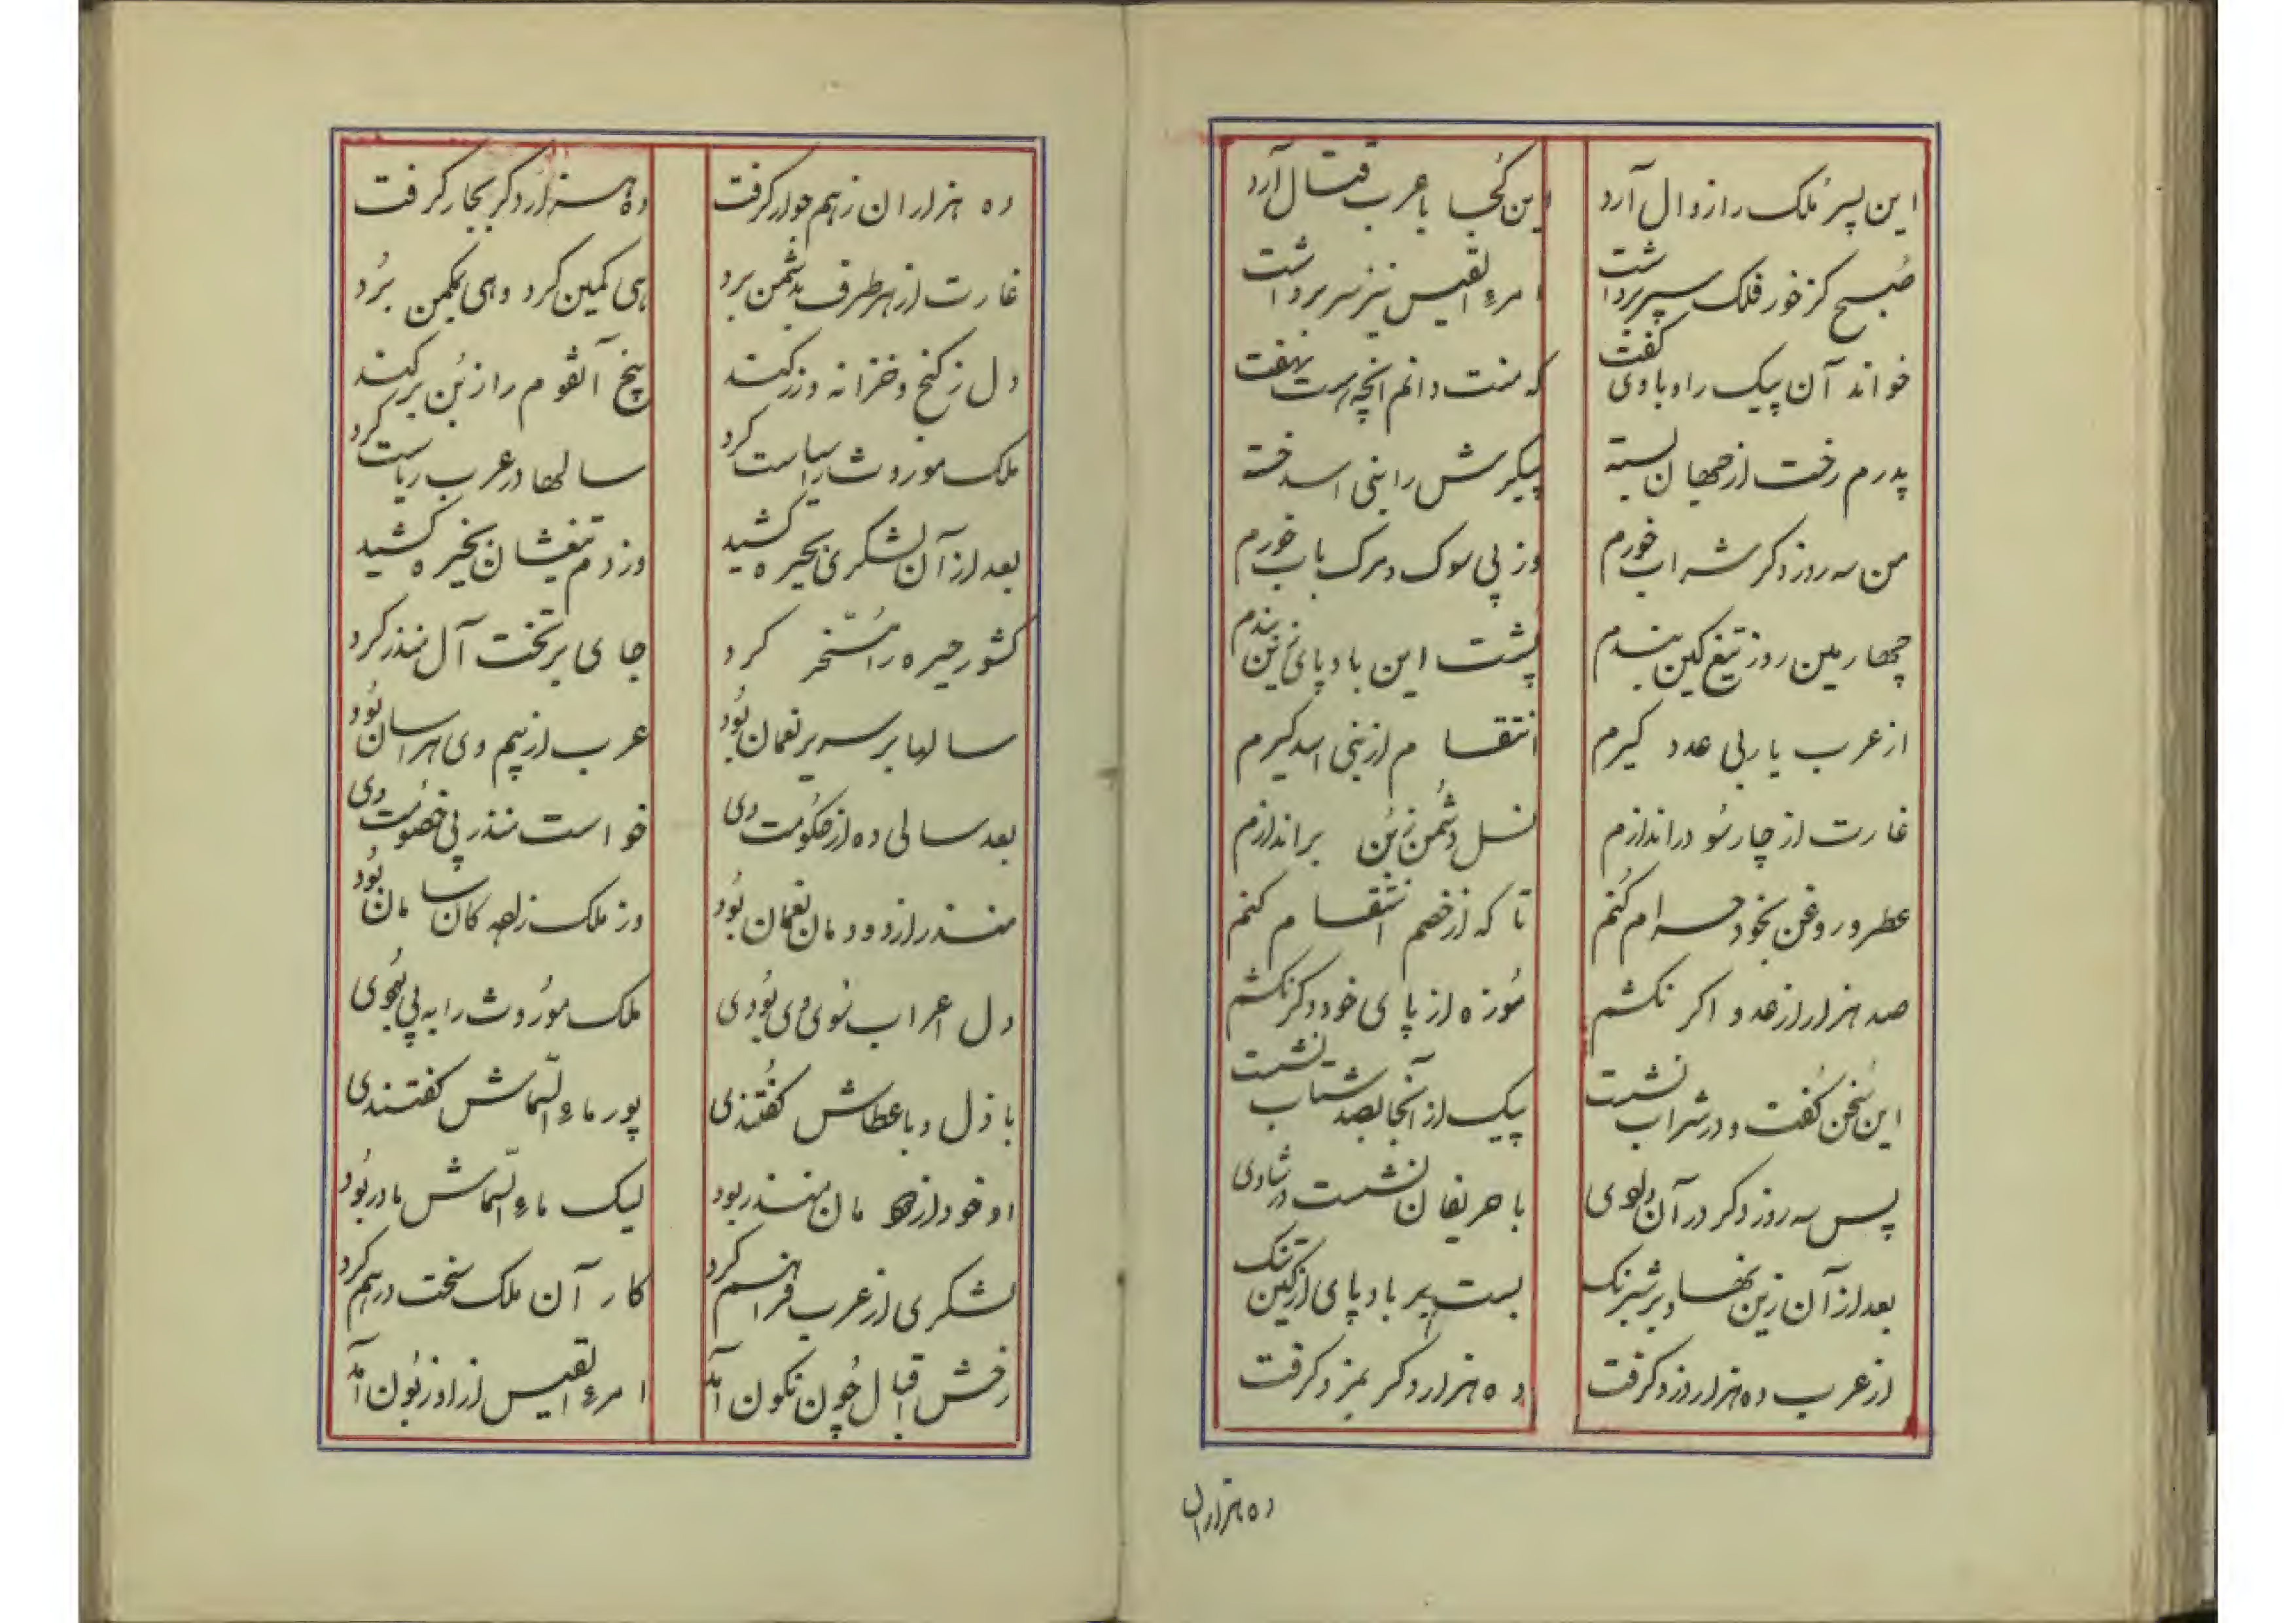 این پسر مُلک را زوال آرد
این کُجا با عرب قتال آرد
صُبح کز خور فلک سپر برداشت
امرءالقیس نیز سر برداشت
خواند آن پیک را و با وی گفت
که منت دانم انچه است نهفت
پدرم رخت از جهان بسته
پیکرش را بنی اسد خسته
من سه روز دکر شراب خورم
وز پی سوک و مرک باب خورم
چهارمین روز تیغ کین بندم
پُشت این باد پای زین بندم
از عرب یار بی عدد کیرم
انتقام از بنی اسد کیرم
غارت از چار سُو دراندازم
نسل دشُمن زبُن براندازم
عطر و روغن بخود حرام کُنم
تا که از خصم انتقام کنم
صد هزار از عدو اکر نکشم
مُوزه از پای خود دکر نکشم
این سُخن کُفت و در شراب نشست
پیک از آنجا بصد شتاب نشست
پس سه روز دکر در آن وادی
با حریفان نشست در شادی
بعد از آن زین نهاد بر شبرنک
بست بر باد پای از کین تنک
از عرب ده هزار دزد کرفت
ده هزار دکر بمزد کرفت
ده هزاران
ده هزاران زهم جوار کرفت
ده هزار دکر بجار کرفت
غارت از هر طرف بدشمن برد
هی کمین کرد و هی بکمن بُرد
دل ز کنج و خزانه وز زر کند
بیخ آنقوم را از بُن برکند
ملک موروث را سیاست کرد
سالها در عرب ریاست کرد
بعد از آن لشکری بحیره کشید
وز دم تیغشان بخیره کشید
کشور حیره را مُسّخر کرد
جای بر تخت آل منذر کرد
سالها بر سریر نعمان بُود
عرب از بیم وی هراسان بُود
بعد سالی ده از حکُومت وی
خواست منذر پی خصُومت وی
منذر از دودمان نعمان بُود
وز ملک زاده کان سامان بُود
دل اعراب سُوی وی بُودی
ملک مورُوث را به پی بُودی
باذل و با عطاش کفُتندی
پور ماءالسّماش کفتندی
او خود از دودمان منذر بود
لیک ماءالسّماش مادر بُود
لشکری از عرب فراهم کرد
کار آن ملک سخت درهم کرد
رخش اقبال چُون نکون آمد
امرءالقیس از او زبُون آمد